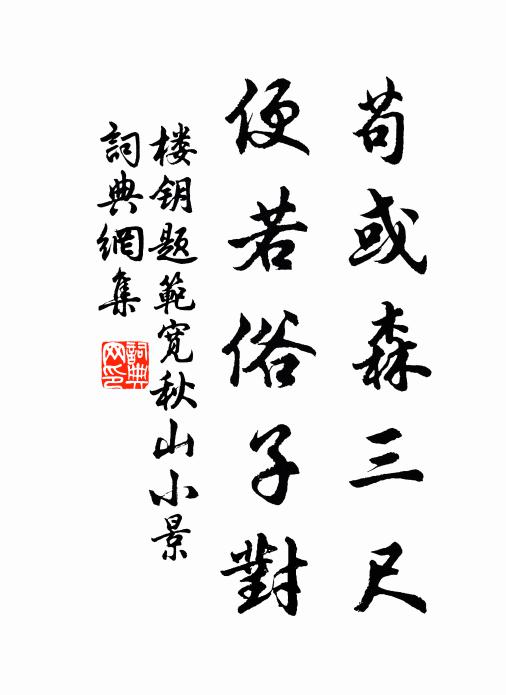 苟或森三尺
便若俗子對
楼钥题範宽秋山小景
詞典網集
詞典网印